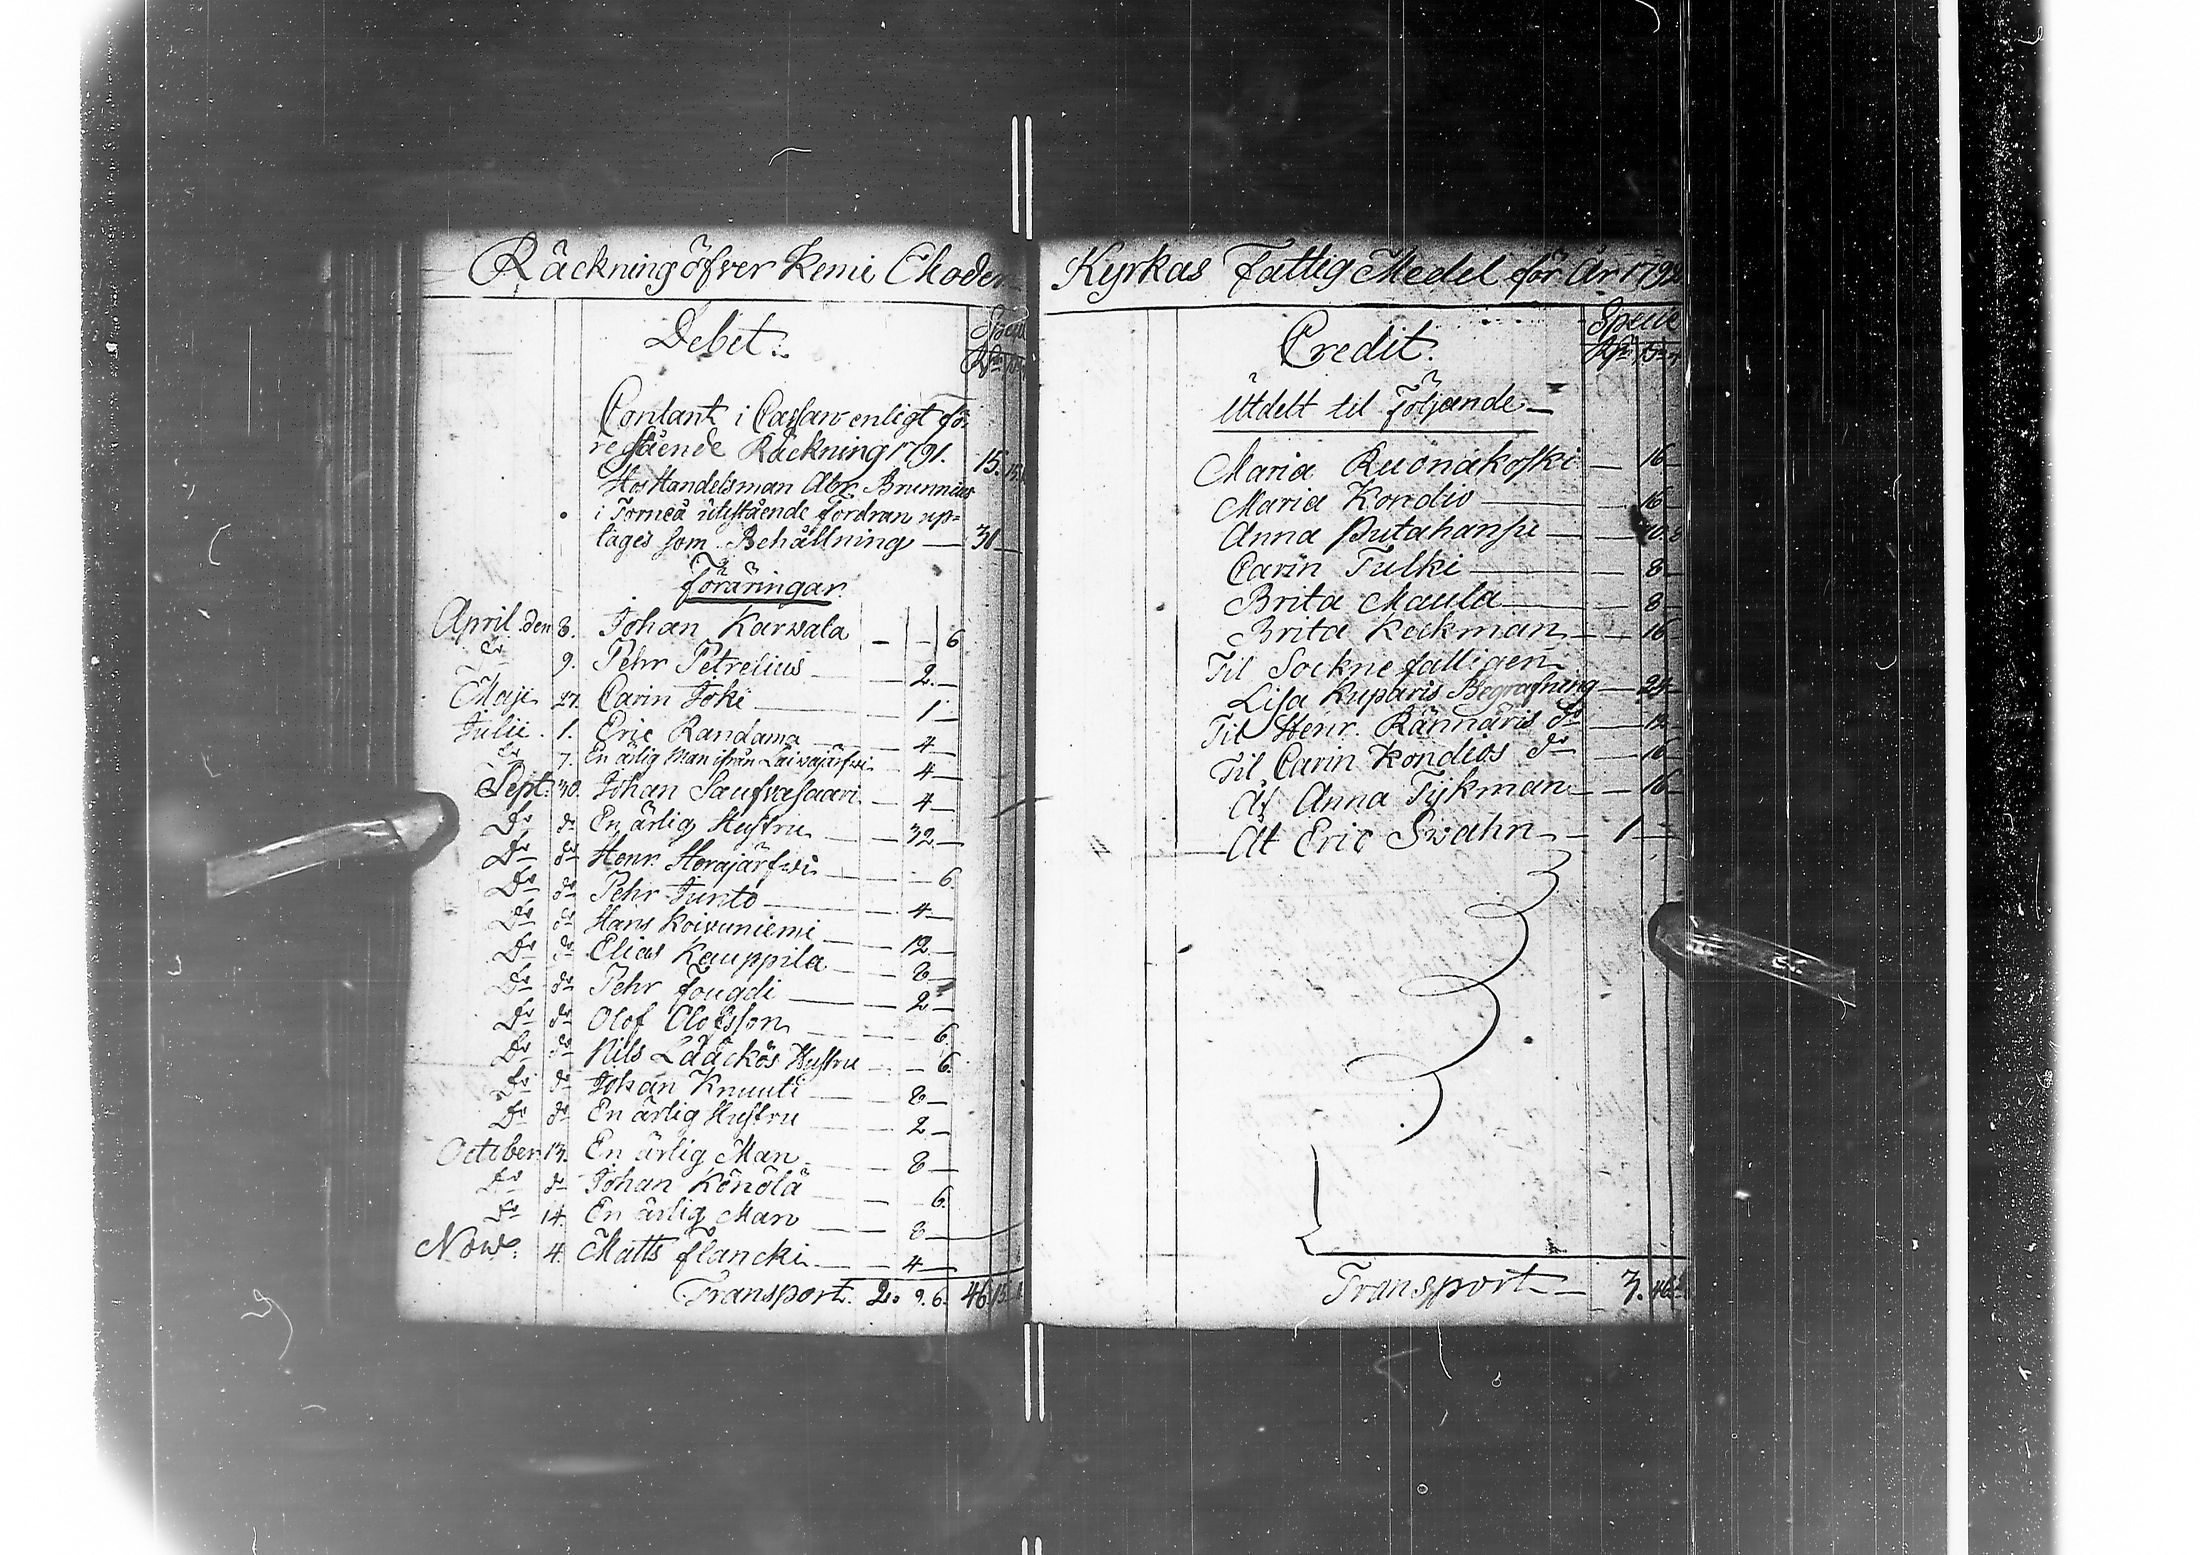 Räckning öfver Kemi Moder
Debet.
Specie
Contant i Cassan enligt fö-
regående Räckning 1791. 15.
Hos Handelsman Abr. Brunnius
i Torneå utestående fordran up-
tages som Behållning — 30 —
Föräringar
April den 8. Johan Karvala — — 6
Do 9. Pehr Petrelius — 2. —
Maji 27. Carin Joki — 1 —
Julii. 1. Eric Randama — 4 —
Do 7. En ärlig Man ifrån Laivajärfvi — 4 —
Sept: 30. Johan Saufvasaari — 4 —
Do do En ärlig Hustru — 32 —
Do do Henr Herajärfvi — — 6.
Do do Pehr Junto — 4 —
Do do Hans Koivuniemi — 12 —
Do do Elias Kauppila — 8 —
Do do Pehr Fougdi — 2 —
Do do Olof Olofsson — — 6.
Do do Nils Lääckös Hustru — — 6.
Do do Johan Knuuti — 8 —
Do do En ärlig Hustru — 2 —
October 13. En ärlig Man — 8 —
Do do Johan Könölä — — 6.
Do 14. En ärlig Man — 8 —
Nov: 4. Matts Flancki — 4 —
Transport. 2. 9. 6. 46.
Kyrkas Fattig Medel för År 1792
Credit.
Specie
Utdelt til Följande —
Maria Ruonakoski — 16 —
Maria Kondio — 16 —
Anna Putahansu — 8
Carin Tulki — 8 —
Brita Maula — 8 —
Brita Keckman — 16 —
Til Sockne fattigen
Lisa Kuparis Begrafning — 24 —
Til Henr. Rännäris do —
Til Carin Kondios do — 16 —
Åt Anna Tykman — 16 —
Åt Eric Swahn — 1 —
Transport — 3.